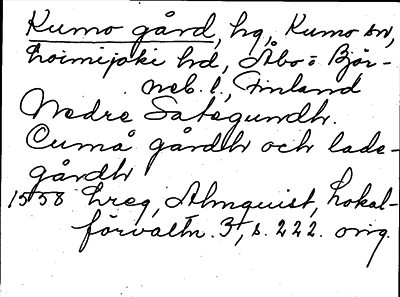 Kumo gård, hg, Kumo sn,
Loimijoki hd, Åbo o Björ-
neb. l., Finland
Nedre Sategundh.
Cumå gårdh och lade-
gårdh
1558 Lreg, Almquist, Lokal-
förvaltn. 3, s. 222. orig.